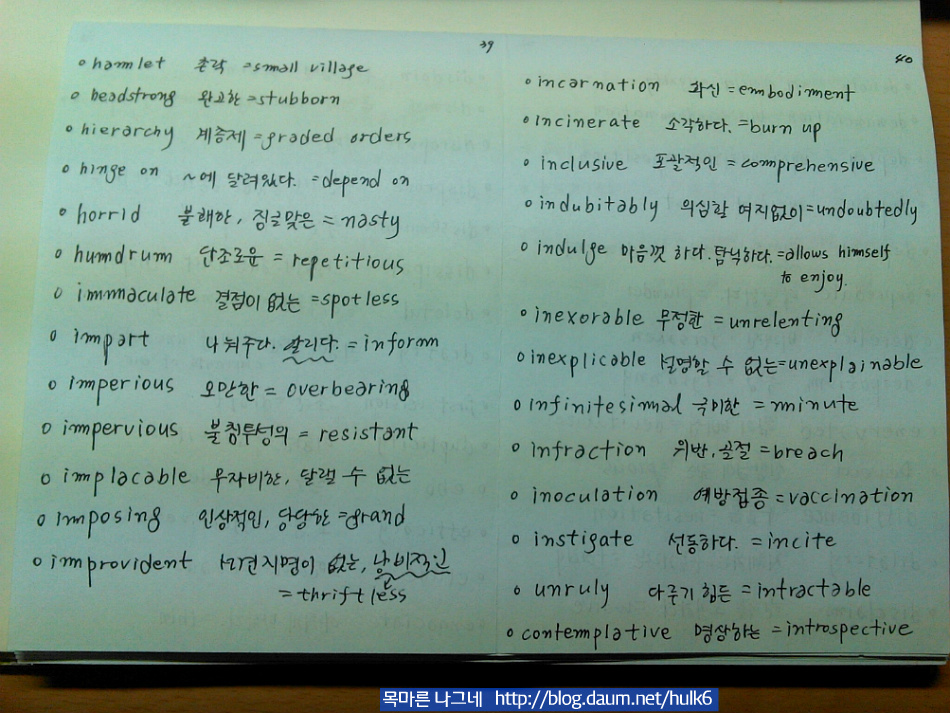 39
o hamlet 촌락 =small village
o headstrong 완고한 =stubborn
o hierarchy 계층제 =graded orders
o hinge on ~에 달려있다. =depend on
o horrid 불쾌한, 짐글맞은 = nasty
o humdrum 단조로운 = repetitious
o immaculate 결점이 없는 =spotless
o impart 나눠주다. 알리다. = inform
o imperious 오만한 = overbearing
o impervious 불침투성의 = resistant
o implacable 무자비한, 달랠 수 없는
o imposing 인상적인, 당당한 =grand
o improvident 선견지명이 없는, 낭비적인
=thriftless
40
o incarnation 화신 =embodiment
o incinerate 소각하다. =burn up
o inclusive 포괄적인 = comprehensive
o indubitably 의심할 여지없이=undoubtedly
o indulge 마음껏 하다. 탐닉하다. =allows himself
to enjoy.
o inexorable 무정한 =unrelenting
o inexplicable 설명할 수 없는=unexplainable
o infinitesimal 극미한 =minute
o infraction 위반, 골절 =breach
o inoculation 예방접종 =vaccination
o instigate 선동하다. =incite
o unruly 다루기 힘든 =intractable
o contemplative 명상하는 =introspective
목마른 나그네 http://blog.daum.net/hulk6